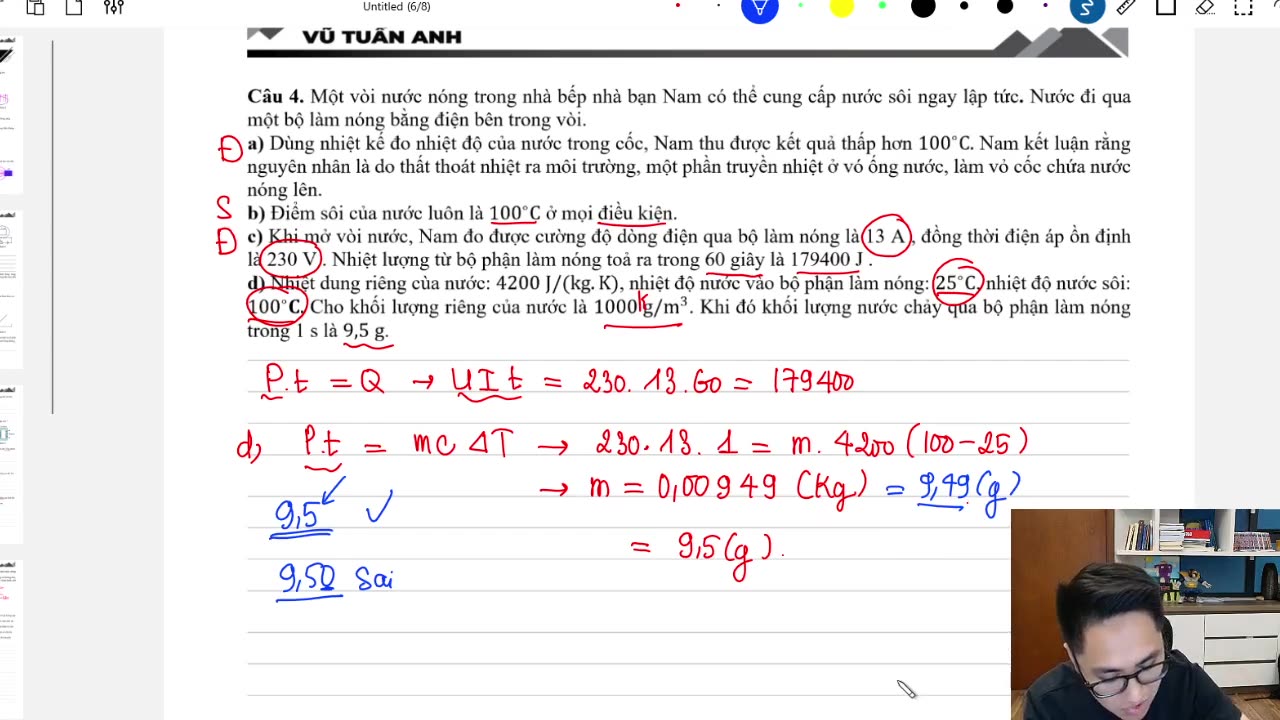 Untitled (6/8)
VŨ TUẤN ANH
Câu 4. Một vòi nước nóng trong nhà bếp nhà bạn Nam có thể cung cấp nước sôi ngay lập tức. Nước đi qua
một bộ làm nóng bằng điện bên trong vòi.
Đ a) Dùng nhiệt kế đo nhiệt độ của nước trong cốc, Nam thu được kết quả thấp hơn 100°C. Nam kết luận rằng
nguyên nhân là do thất thoát nhiệt ra môi trường, một phần truyền nhiệt ở vỏ ống nước, làm vỏ cốc chứa nước
nóng lên.
S b) Điểm sôi của nước luôn là 100°C ở mọi điều kiện.
Đ c) Khi mở vòi nước, Nam đo được cường độ dòng điện qua bộ làm nóng là 13 A, đồng thời điện áp ổn định
là 230 V. Nhiệt lượng từ bộ phận làm nóng toả ra trong 60 giây là 179400 J.
d) Nhiệt dung riêng của nước: 4200 J/(kg. K), nhiệt độ nước vào bộ phận làm nóng: 25°C, nhiệt độ nước sôi:
100°C. Cho khối lượng riêng của nước là 1000kg/m³. Khi đó khối lượng nước chảy qua bộ phận làm nóng
trong 1 s là 9,5 g.
P.t = Q → UIt = 230. 13. 60 = 179400
d, P.t = mc ΔT → 230. 13. 1 = m. 4200 (100 - 25)
→ m = 0,00949 (kg) = 9,49 (g)
9,5 ✓
= 9,5 (g).
9,50 Sai